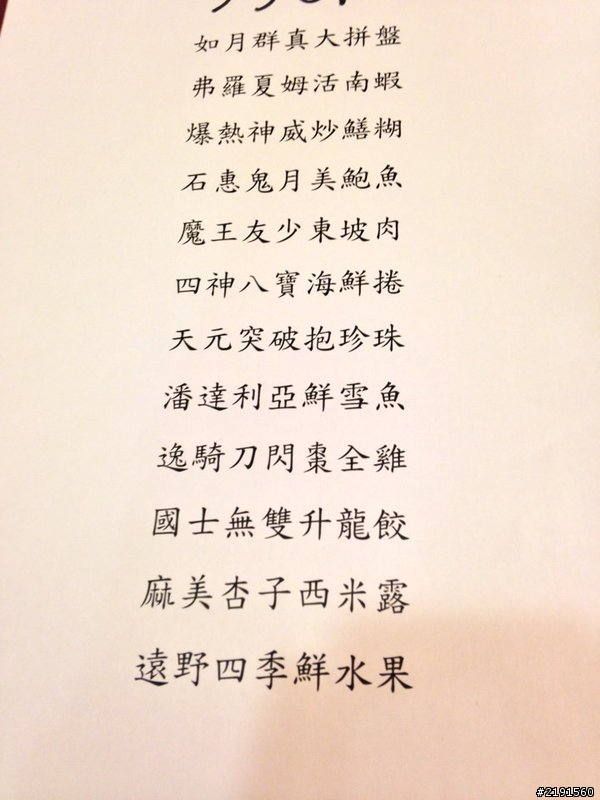 如月群真大拼盤
弗羅夏姆活南蝦
爆熱神威炒鱔糊
石惠鬼月美鮑魚
魔王友少東坡肉
四神八寶海鮮捲
天元突破抱珍珠
潘達利亞鮮雪魚
逸騎刀閃棗全雞
國士無雙升龍餃
麻美杏子西米露
遠野四季鮮水果
#2191560